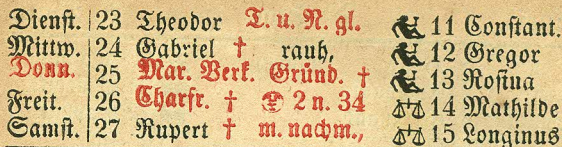 Dienst. 23 Theodor T. u. N. gl. 11 Constant.
Mittw. 24 Gabriel † rauh, 12 Gregor
Donn. 25 Mar. Verk. Gründ. † 13 Rosina
Freit. 26 Charfr. † 2 n. 34 14 Mathilde
Samst. 27 Rupert † m. nachm., 15 Longinus